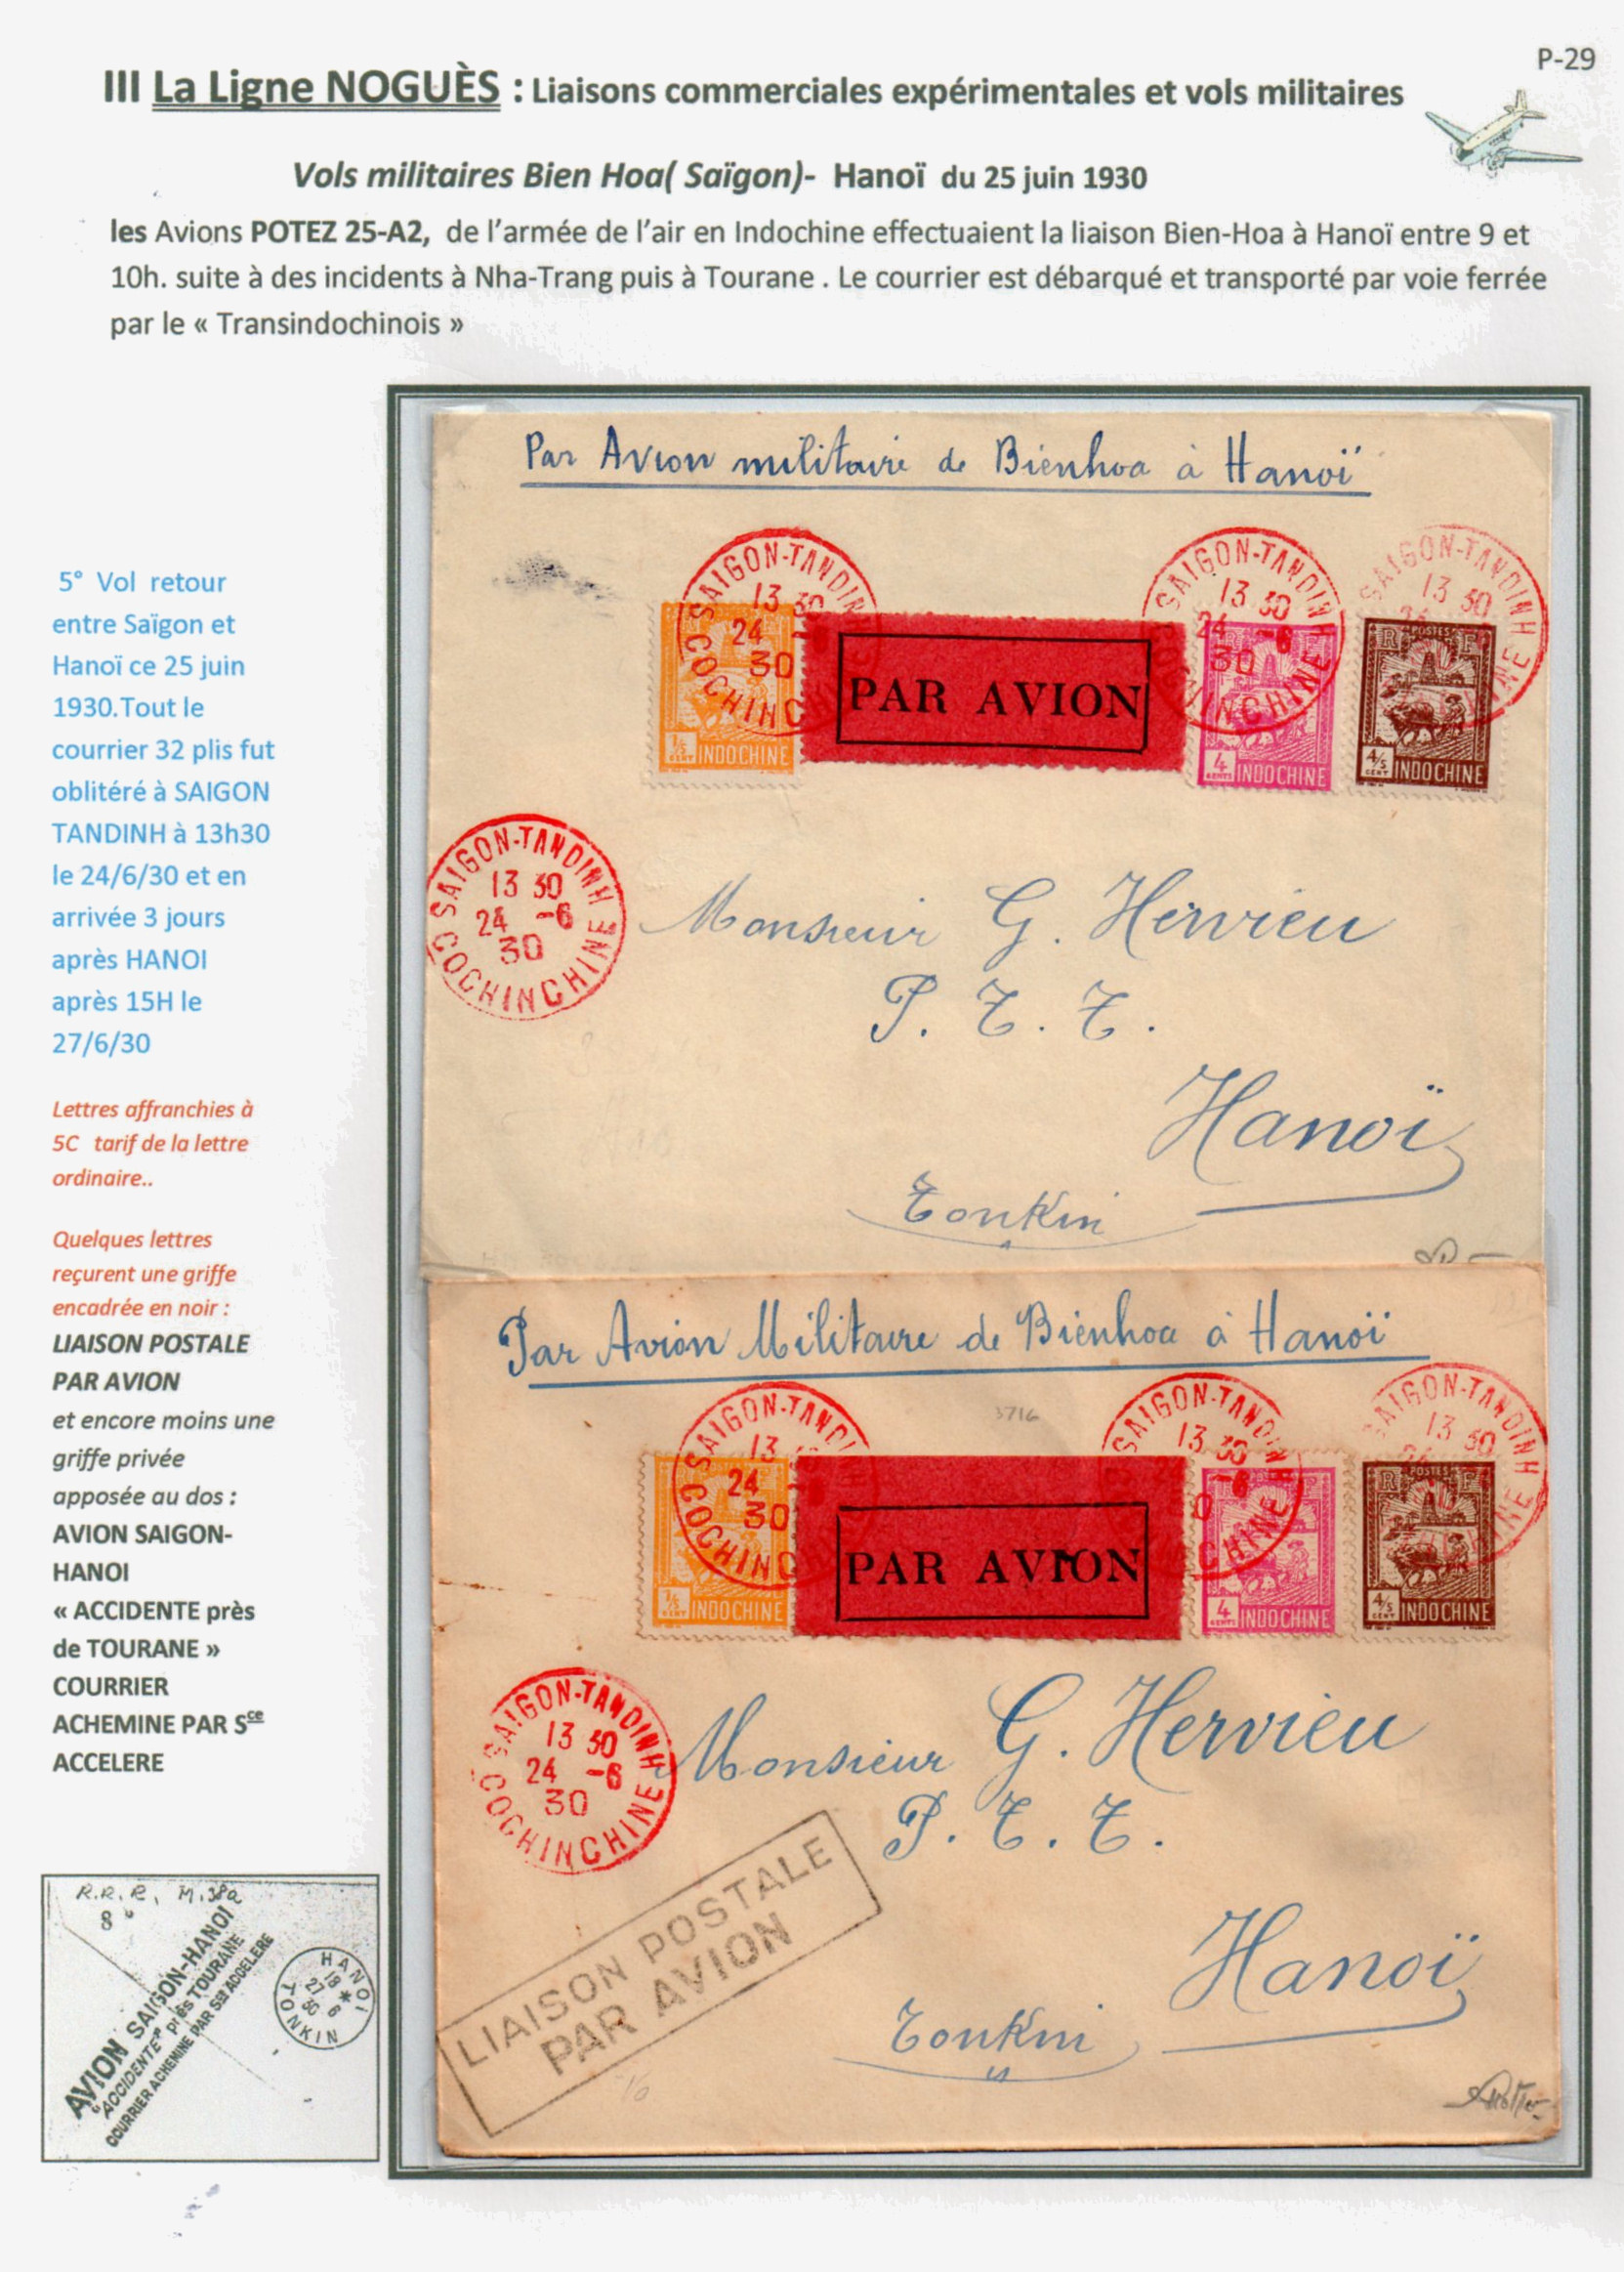 P-29
III La Ligne NOGUÈS : Liaisons commerciales expérimentales et vols militaires
Vols militaires Bien Hoa( Saïgon)- Hanoï du 25 juin 1930
les Avions POTEZ 25-A2, de l'armée de l'air en Indochine effectuaient la liaison Bien-Hoa à Hanoï entre 9 et
10h. suite à des incidents à Nha-Trang puis à Tourane . Le courrier est débarqué et transporté par voie ferrée
par le « Transindochinois »
5° Vol retour
entre Saïgon et
Hanoï ce 25 juin
1930.Tout le
courrier 32 plis fut
oblitéré à SAIGON
TANDINH à 13h30
le 24/6/30 et en
arrivée 3 jours
après HANOI
après 15H le
27/6/30
Lettres affranchies à
5C tarif de la lettre
ordinaire..
Quelques lettres
reçurent une griffe
encadrée en noir :
LIAISON POSTALE
PAR AVION
et encore moins une
griffe privée
apposée au dos :
AVION SAIGON-
HANOI
« ACCIDENTE près
de TOURANE »
COURRIER
ACHEMINE PAR Sce
ACCELERE
R.R.R, M.38a
8
AVION SAIGON-HANOI
"ACCIDENTE" près TOURANE
COURRIER ACHEMINE PAR Sce ACCELERE
HANOI
18 *
27 6
30
TONKIN
Par Avion militaire de Bienhoa à Hanoï
SAIGON-TANDINH
13 30
24 -6
30
COCHINCHINE
SAIGON-TANDINH
13 30
24 -6
30
COCHINCHINE
SAIGON-TANDINH
13 30
PAR AVION
1/5 CENT INDOCHINE
4 CENTS INDOCHINE
R POSTES F
4/5 CENT INDOCHINE
SAIGON-TANDINH
13 30
24 -6
30
COCHINCHINE
Monsieur G. Hervieu
P. T. T.
Hanoï
Tonkin
Par Avion Militaire de Bienhoa à Hanoï
3716
SAIGON-TANDINH
13
24
30
COCHINCHINE
SAIGON-TANDINH
13 30
-6
COCHINCHINE
SAIGON-TANDINH
13 30
PAR AVION
1/5 CENT INDOCHINE
4 CENTS INDOCHINE
R POSTES F
4/5 CENT INDOCHINE
SAIGON-TANDINH
13 30
24 -6
30
COCHINCHINE
Monsieur G. Hervieu
P. T. T.
LIAISON POSTALE
PAR AVION
Hanoï
Tonkin